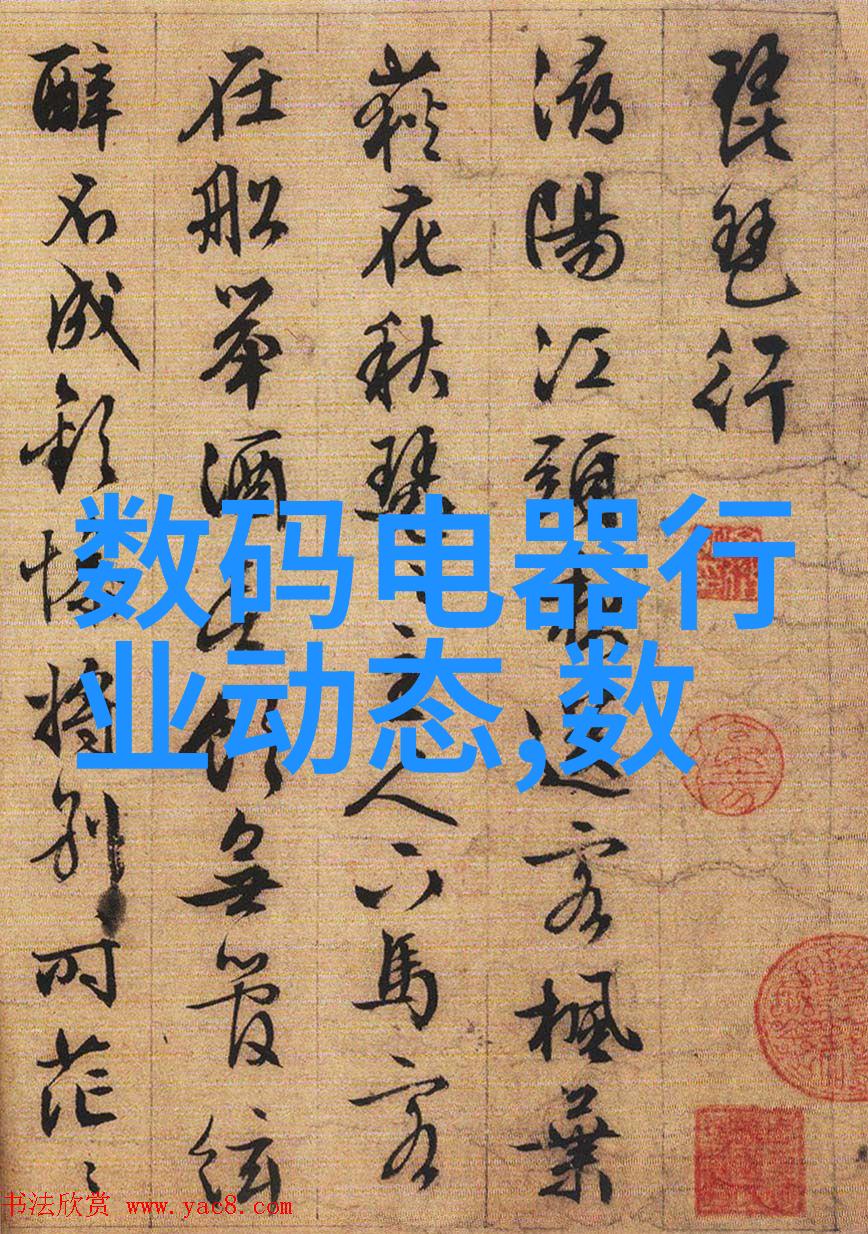 琵琶行
潯陽江頭夜送客楓葉
荻花秋瑟〻主人下馬客
在船举酒欲飲無管絃
醉不成歡惨將別時茫〻
数码电器行
业动态,数
书法欣赏 www.yac8.com